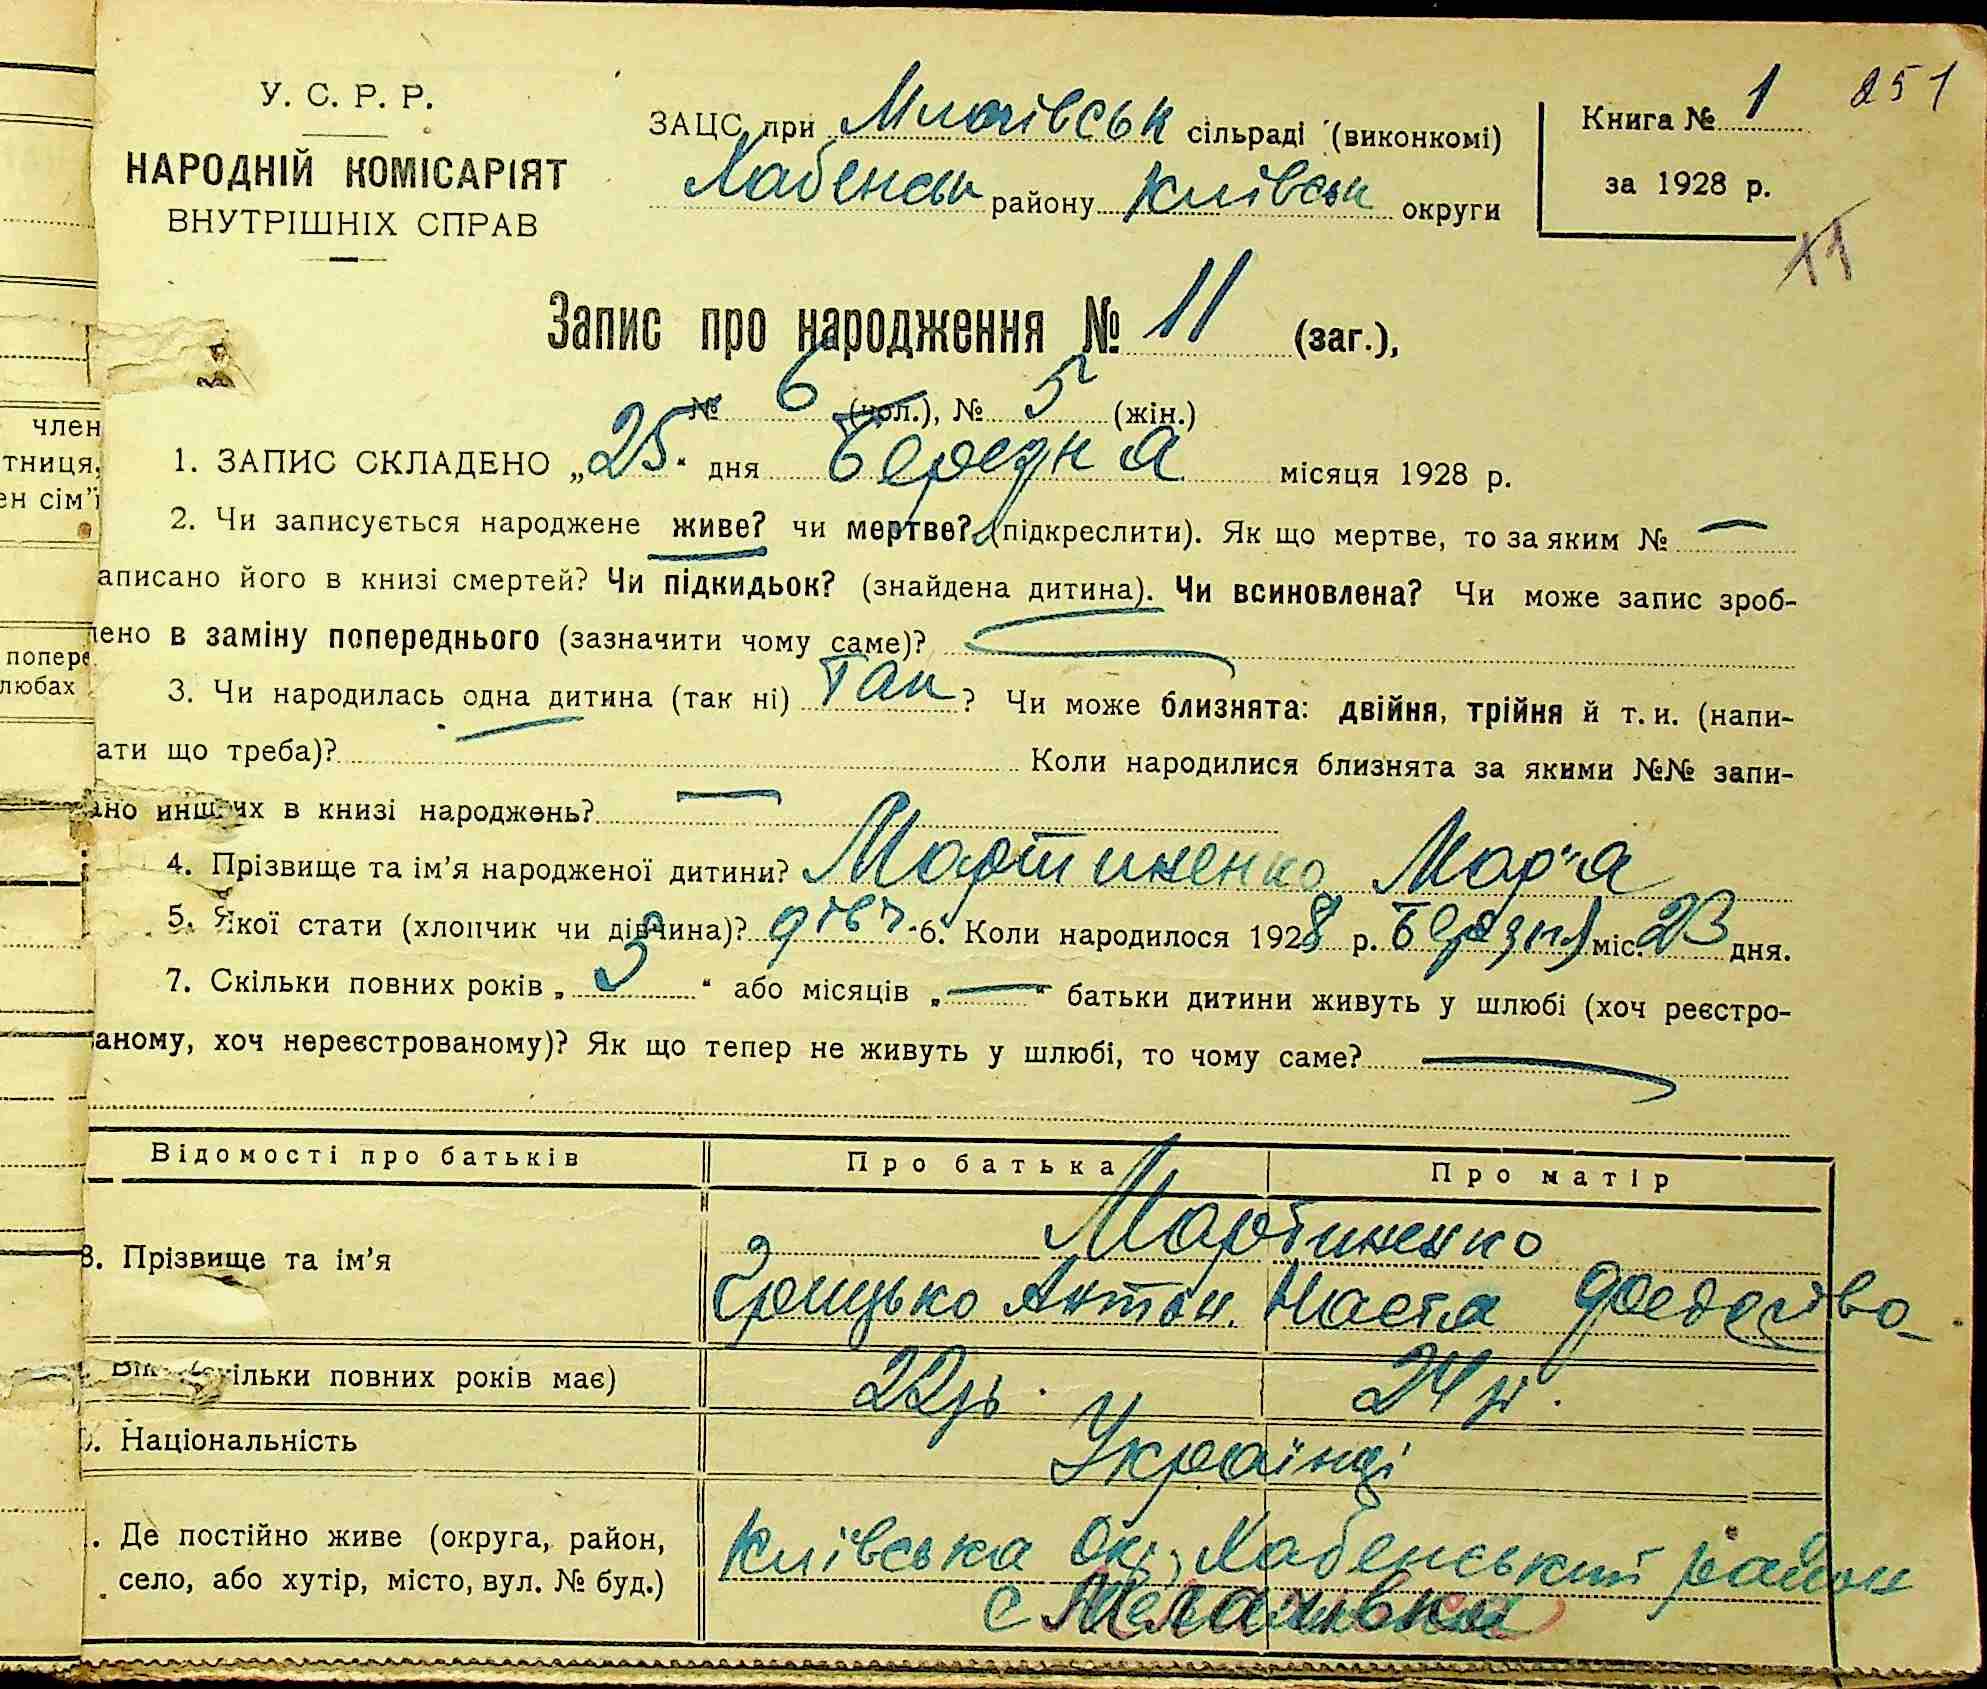 У. С. Р. Р.
НАРОДНІЙ КОМІСАРІЯТ
ВНУТРІШНІХ СПРАВ
ЗАЦС при сільраді (виконкомі)
Хабенськ району Київськ округи
Книга № 1
за 1928 р.
251
11
Запис про народження № 11 (заг.),
№ 6 (чол.), № 5 (жін.)
1. ЗАПИС СКЛАДЕНО „25" дня Березня місяця 1928 р.
2. Чи записується народжене живе? чи мертве? (підкреслити). Як що мертве, то за яким № —
аписано його в книзі смертей? Чи підкидьок? (знайдена дитина). Чи всиновлена? Чи може запис зроб-
лено в заміну попереднього (зазначити чому саме)?
3. Чи народилась одна дитина (так ні) Так? Чи може близнята: двійня, трійня й т. и. (напи-
ати що треба)? Коли народилися близнята за якими №№ запи-
ано инших в книзі народжень? —
4. Прізвище та ім'я народженої дитини? Мартиненко Мар'а
5. Якої стати (хлопчик чи дівчина)? дівч. 6. Коли народилося 1928 р. березня міс. 23 дня.
7. Скільки повних років „3" або місяців „—" батьки дитини живуть у шлюбі (хоч реєстро-
аному, хоч нереєстрованому)? Як що тепер не живуть у шлюбі, то чому саме? —
Відомості про батьків Про батька Про матір
8. Прізвище та ім'я Мартиненко
Грицько Антон. Наста
Вік (скільки повних років має) 22 р. 24 р.
Національність Українці
Де постійно живе (округа, район, Київська Окр, Хабенський район
село, або хутір, місто, вул. № буд.) с
член
тниця,
ен сім'ї
попере
любах